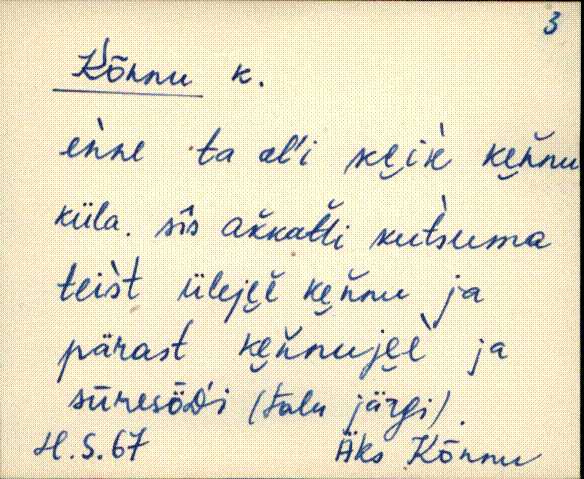 3
Kõnnu k.
èǹne ta ol'i kę̮ik kę̮ňnu
küla. sī̂s akkatti kutsuma
teist üleję̮ę̮ kę̮ňnu ja
pärast kę̮ňnuję̮ę̮ ja
sūresȫD'i (talu järgi).
H.S.67 Äks Kõnnu